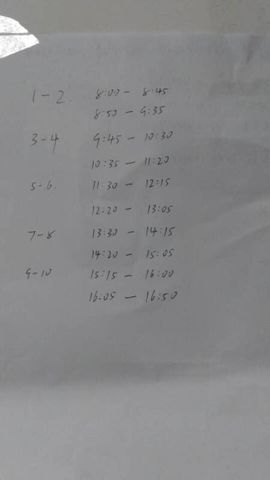 1-2. 8:00 - 8:45
8:50 - 9:35
3-4 9:45 - 10:30
10:35 - 11:20
5-6 11:30 - 12:15
12:20 - 13:05
7-8 13:30 - 14:15
14:20 - 15:05
9-10 15:15 - 16:00
16:05 - 16:50